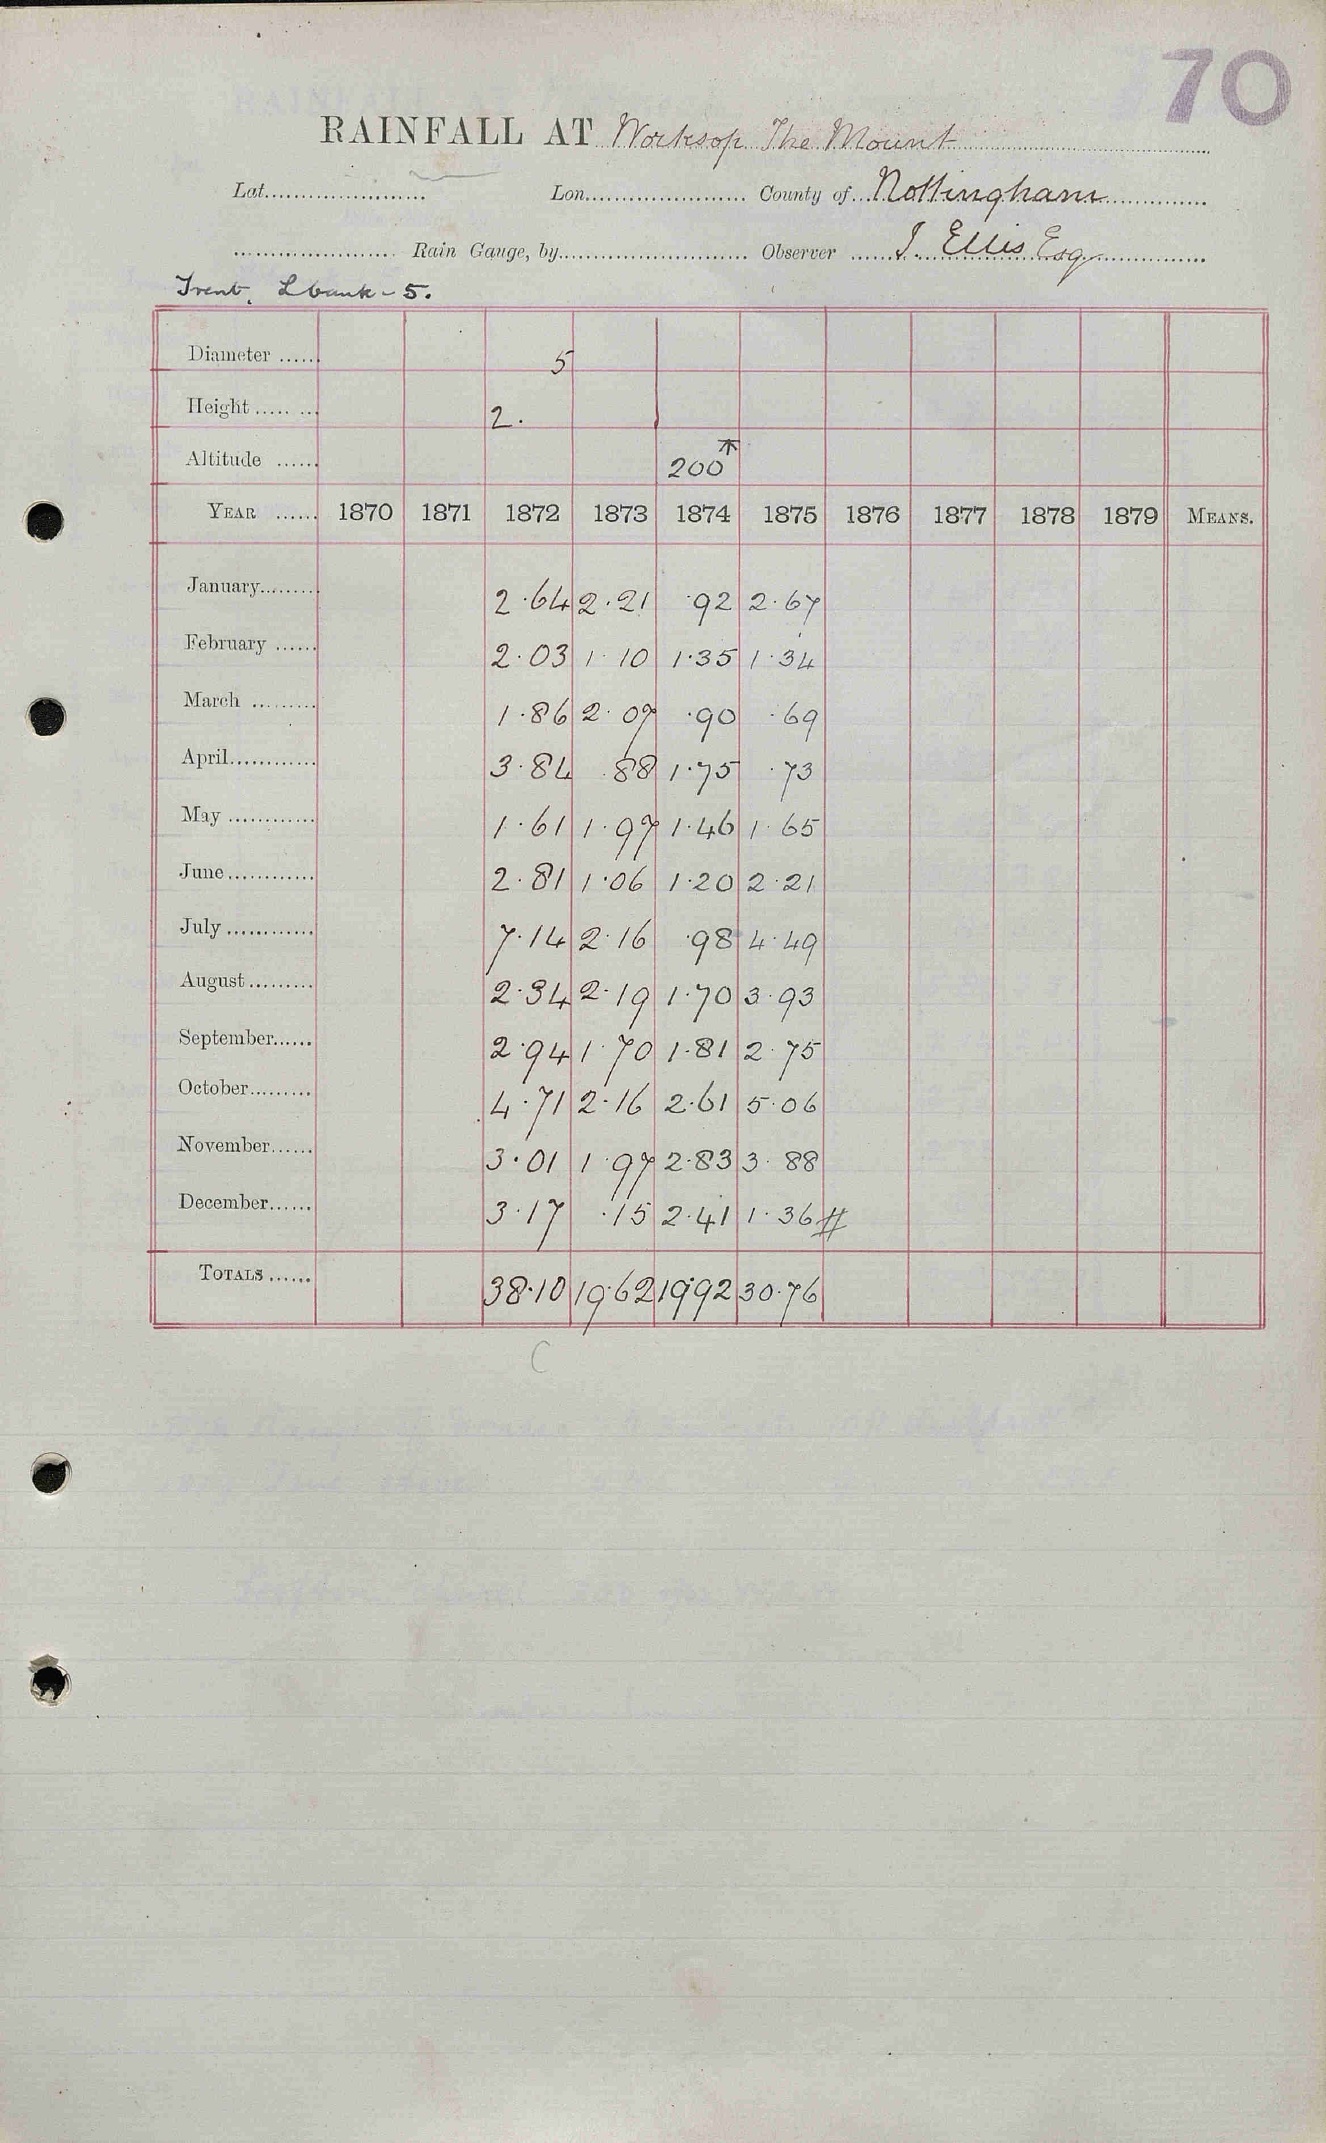 70
RAINFALL AT Worksop The Mount
Lat. Lon. County of Nottingham
Rain Gauge, by Observer J. Ellis Esq
Trent, L bank - 5.
Diameter ...... 5
Height ...... 2.
Altitude ...... 200
YEAR ...... 1870 1871 1872 1873 1874 1875 1876 1877 1878 1879 MEANS.
January 2.64 2.21 .92 2.67
February 2.03 1.10 1.35 1.34
March 1.86 2.07 .90 .69
April 3.84 .88 1.75 .73
May 1.61 1.97 1.46 1.65
June 2.81 1.06 1.20 2.21
July 7.14 2.16 .98 4.49
August 2.34 2.19 1.70 3.93
September 2.94 1.70 1.81 2.75
October 4.71 2.16 2.61 5.06
November 3.01 1.97 2.83 3.88
December 3.17 .15 2.41 1.36 #
TOTALS 38.10 19.62 19.92 30.76
C